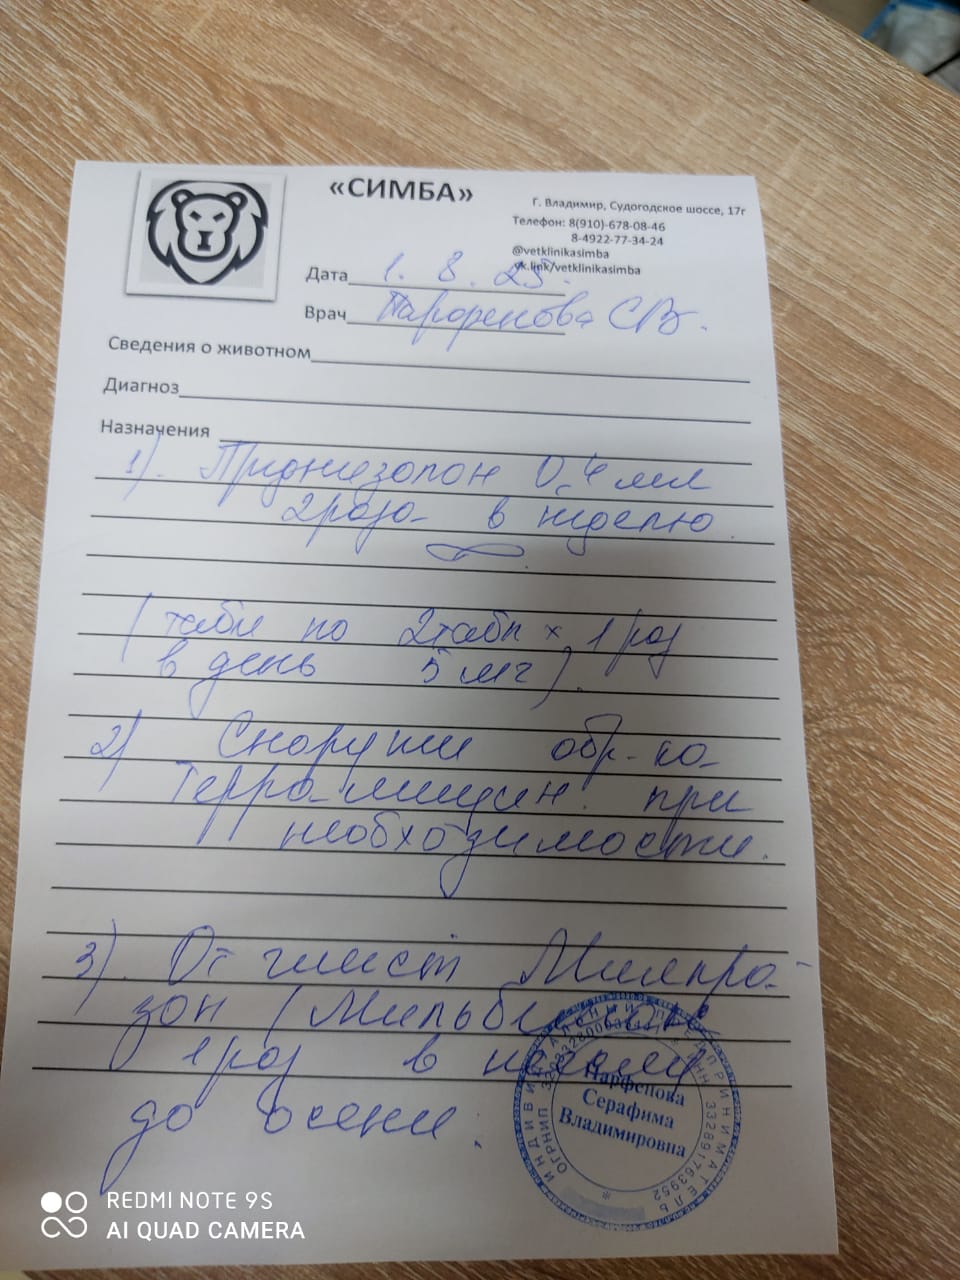 «СИМБА»
Г. Владимир, Судогодское шоссе, 17г
Телефон: 8(910)-678-08-46
8-4922-77-34-24
@vetklinikasimba
vk.link/vetklinikasimba
Дата 1. 8. 25.
Врач Парфенова СВ.
Сведения о животном
Диагноз
Назначения
1). Преднизолон 0,4 мл
2 раза в неделю.
(табл по 2табл х 1 раз
в день 5 мг).
2) Снаружи обр-ка
террамицин. при
необходимости.
3). От глист Милпра-
зон (Мильбе
1 раз в неделю
до осени.
ИНДИВИДУАЛЬНЫЙ ПРЕДПРИНИМАТЕЛЬ
ОГРНИП
ИНН 332891763952
Парфенова
Серафима
Владимировна
REDMI NOTE 9S
AI QUAD CAMERA